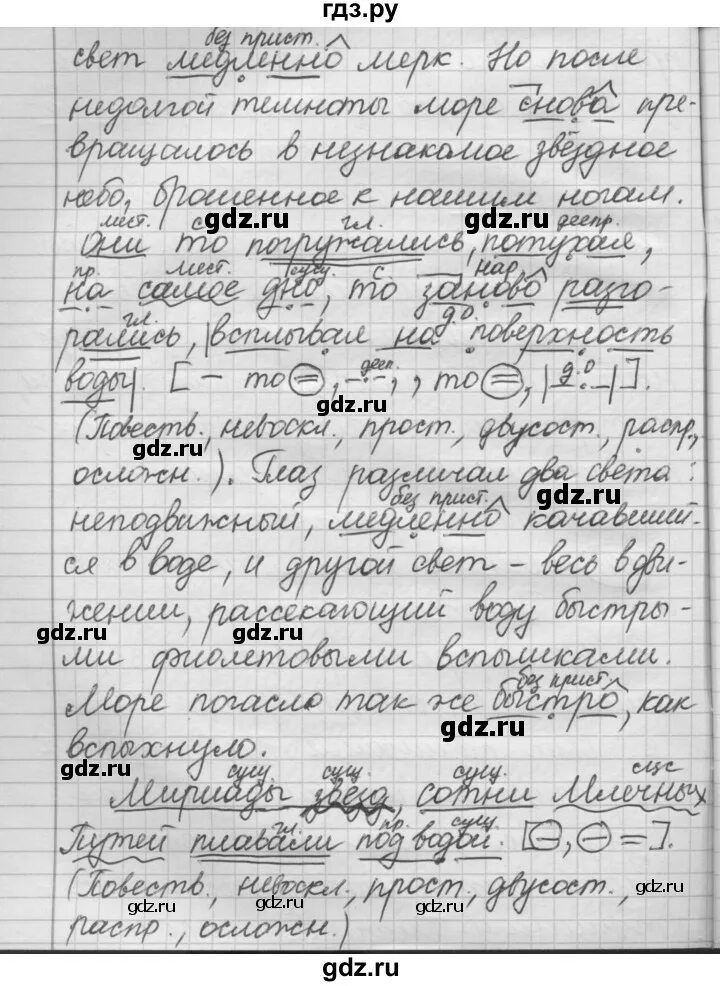 гдз.ру
без прист.
свет медленно мерк. Но после
недолгой темноты море снова пре-
вращалось в незнакомое звёздное
небо, брошенное к нашим ногам.
gdz.ru gdz.ru
мест. с гл. деепр.
Они то погружались, потухая,
пр. мест. сущ. с нар.
на самое дно, то заново разго-
гл. д.о.
рались, |всплывая на поверхность
дееп. д.о
воды|. [— то ⊜, –·–·, , то ⊜, |–·–|].
gdz.ru gdz.ru
(Повеств., невоскл., прост., двусост., распр.,
осложн.). Глаз различал два света:
gdz.ru gdz.ru
без прист.
неподвижный, медленно качавший-
ся в воде, и другой свет – весь в дви-
жении, рассекающий воду быстры-
gdz.ru gdz.ru
ми фиолетовыми вспышками.
без прист.
Море погасло так же быстро, как
gdz.ru gdz.ru
вспыхнуло.
gdz.ru gdz.ru
сущ. сущ. сущ. сущ.
Мириады звёзд, сотни Млечных
гл. пр. сущ.
Путей плавали под водой. [⊖, ⊖ =].
gdz.ru gdz.ru
(Повеств., невоскл., прост., двусост.,
gdz.ru gdz.ru gdz.ru
распр., осложн.)
gdz.ru